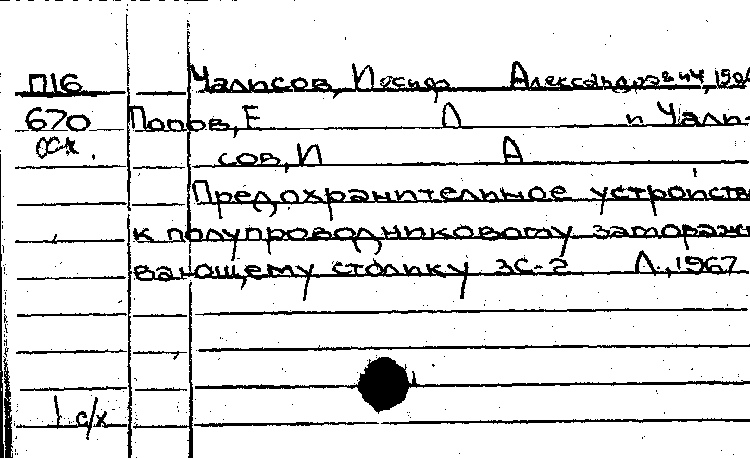 П16 Чалисов, Иосиф Александрович, 190
670 Попов, Е Л и Чали-
осн. сов, И А
Предохранительное устройств
к полупроводниковому заморажи
вающему столику ЗС-2 Л., 1967
1 с/х